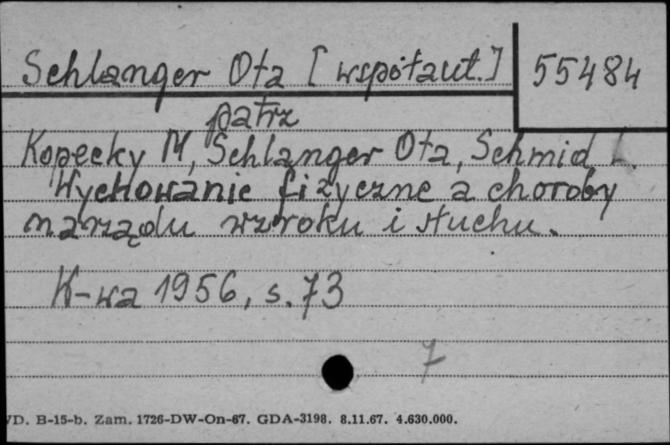 Schlanger Ota [współaut.]
55484
patrz
Kopecky M, Schlanger Ota, Schmid L.
Wychowanie fizyczne a choroby
narządu wzroku i słuchu.
K-wa 1956, s. 73
7
D. B-15-b. Zam. 1726-DW-On-67. GDA-3198. 8.11.67. 4.630.000.